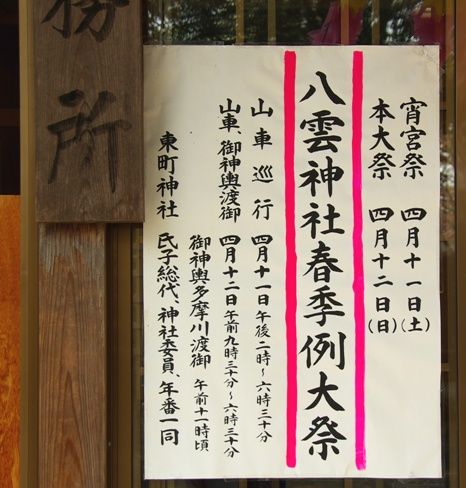 宵宮祭 四月十一日(土)
本大祭 四月十二日(日)
八雲神社春季例大祭
山車巡行 四月十一日午後二時～六時三十分
山車、御神輿渡御 四月十二日午前九時三十分～六時三十分
御神輿多摩川渡御 午前十一時頃
東町神社 氏子総代、神社委員、年番一同
務所